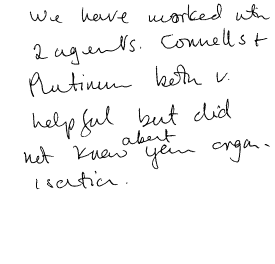 We have worked with
2 agents. Connells +
Platinum both v.
helpful but did
not know about your organ-
isation.